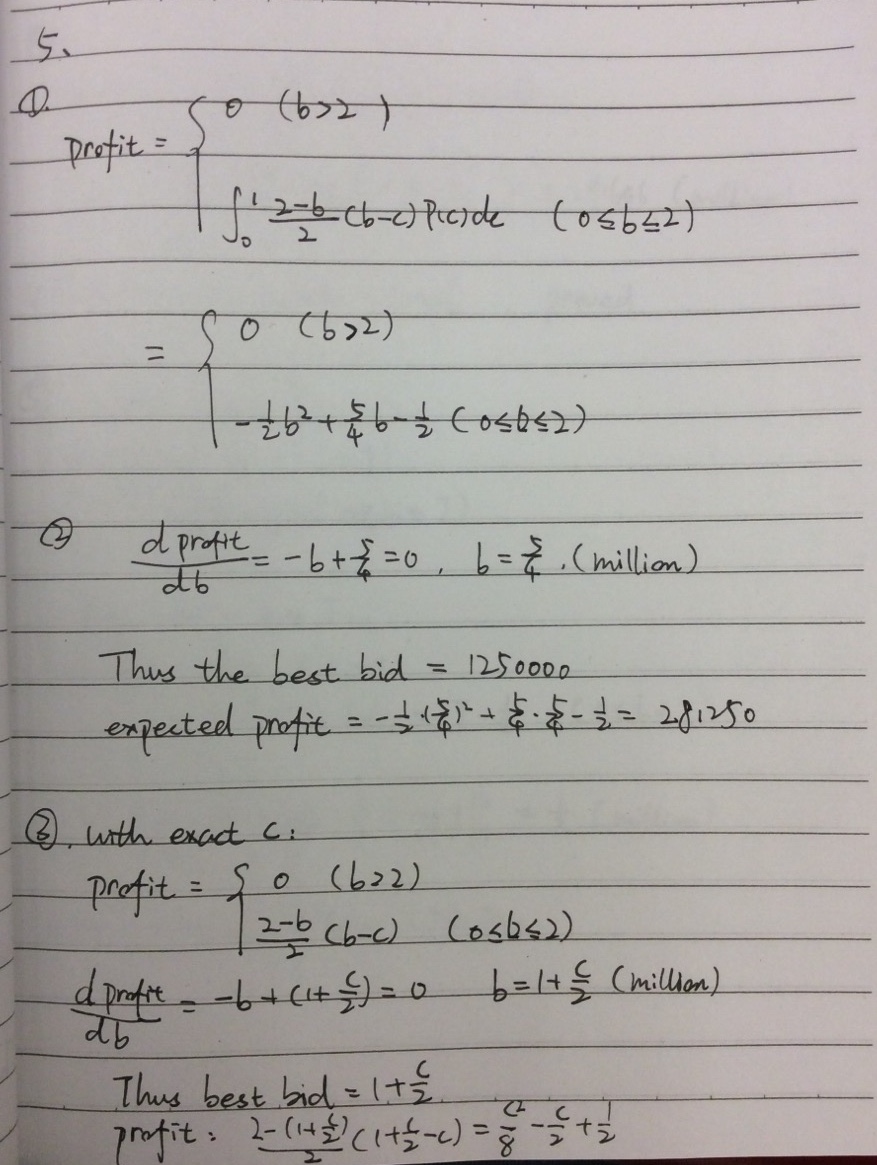 5.
①.
profit = { 0 (b>2)
∫₀¹ (2-b)/2 (b-c) P(c) dc (0≤b≤2)
= { 0 (b>2)
-1/2 b² + 5/4 b - 1/2 (0≤b≤2)
② d profit/db = -b + 5/4 = 0, b = 5/4 .(million)
Thus the best bid = 1250000
expected profit = -1/2·(5/4)² + 5/4·5/4 - 1/2 = 281250
③. with exact c:
profit = { 0 (b>2)
(2-b)/2 (b-c) (0≤b≤2)
d profit/db = -b + (1+c/2) = 0 b = 1+c/2 (million)
Thus best bid = 1+c/2
profit: (2-(1+c/2))/2 (1+c/2-c) = c²/8 - c/2 + 1/2